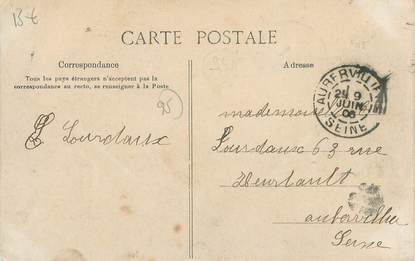 13€
CARTE POSTALE
Correspondance
Tous les pays étrangers n'acceptent pas la
correspondance au recto, se renseigner à la Poste
95
L Lourdaux
Adresse
mademoiselle
Lourdaux 63 rue
Heurtault
aubervillier
Seine
AUBERVILLIERS
9
JUIN
06
SEINE